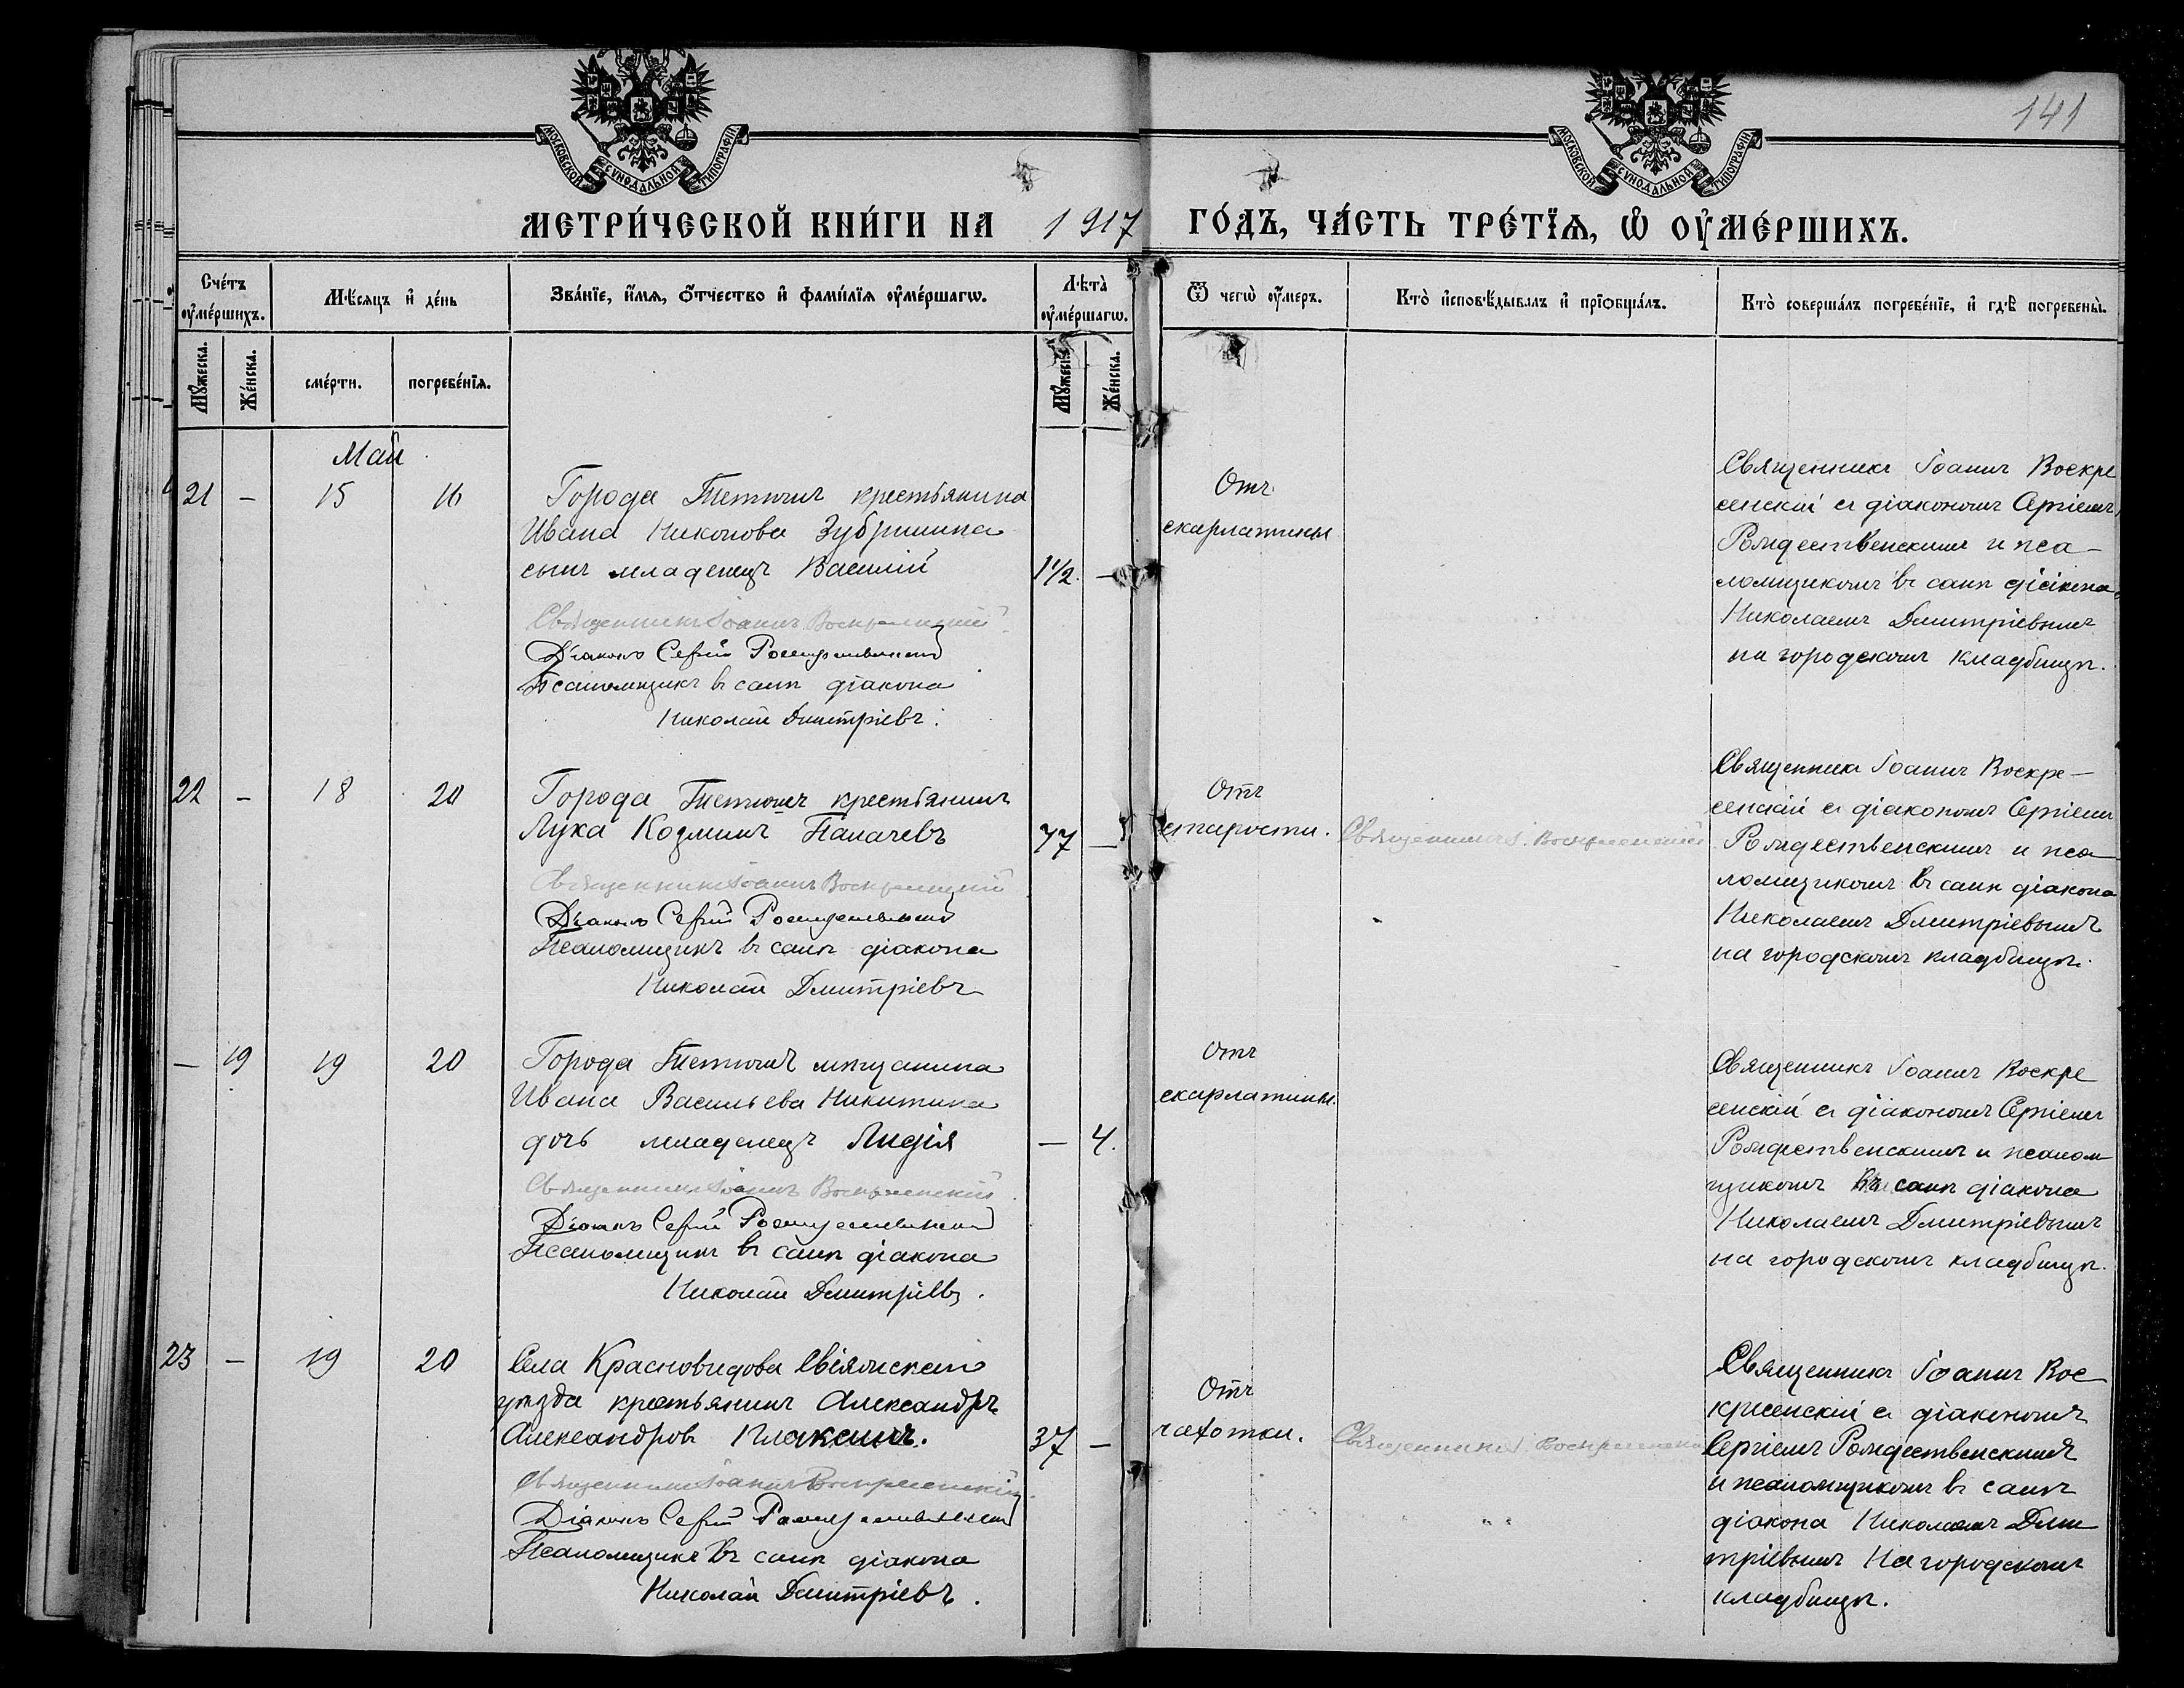 141
МОСКОВСКОЙ СѴНОДАЛЬНОЙ ТИПОГРАФІИ
МОСКОВСКОЙ СѴНОДАЛЬНОЙ ТИПОГРАФІИ
МЕТРИ́ЧЕСКОЙ КНИ́ГИ НА 1917 ГО́ДЪ, ЧА́СТЬ ТРЕ́ТЇѦ, Ѡ҆ ОУ҆МЕ́РШИХЪ.
Сче́тъ оу҆ме́ршихъ.
Мѣ́сяцъ и҆ де́нь
Зва́нїе, и҆́мѧ, ѻ҆́тчество и҆ фами́лїѧ оу҆ме́ршагѡ.
Лѣ́та оу҆ме́ршагѡ.
Ѿ чегѡ̀ оу҆́меръ.
Кто̀ и҆сповѣ́дывалъ и҆ прїѻбща́лъ.
Кто̀ соверша́лъ погребе́нїе, и҆ гдѣ̀ погребены̀.
Мꙋ́жеска.
Же́нска.
сме́рти.
погребе́нїѧ.
Мꙋ́жеска.
Же́нска.
Май
21 - 15 16
Города Тетюшъ крестьянина
Ивана Никонова Зубринина
сынъ младенецъ Василій
1½. -
Священникъ Іоаннъ Воскресенскій
Діаконъ Сергій Рождественскій
Псаломщикъ въ санѣ діакона
Николай Дмитріевъ.
Отъ
скарлатины
Священникъ Іоаннъ Воскре
сенскій съ діакономъ Сергіемъ
Рождественскимъ и пса-
ломщикомъ въ санѣ діакона
Николаемъ Дмитріевымъ
на городскомъ кладбищѣ.
22 - 18 20
Города Тетюшъ крестьянинъ
Лука Козминъ Палачевъ
77 -
Священникъ Іоаннъ Воскресенскій
Діаконъ Сергій Рождественскій
Псаломщикъ въ санѣ діакона
Николай Дмитріевъ
Отъ
старости.
Священникъ І. Воскресенскій
Священникъ Іоаннъ Воскре-
сенскій съ діакономъ Сергіемъ
Рождественскимъ и пса
ломщикомъ въ санѣ діакона
Николаемъ Дмитріевымъ
на городскомъ кладбищѣ.
- 19 19 20
Города Тетюшъ мѣщанина
Ивана Васильева Никитина
дочь младенецъ Лидія
- 4.
Священникъ Іоаннъ Воскресенскій
Діаконъ Сергій Рождественскій
Псаломщикъ въ санѣ діакона
Николай Дмитріевъ.
Отъ
скарлатины.
Священникъ Іоаннъ Воскре
сенскій съ діакономъ Сергіемъ
Рождественскимъ и псалом
щикомъ въ санѣ діакона
Николаемъ Дмитріевымъ
на городскомъ кладбищѣ.
23 - 19 20
Села Красновидова Свіяжскаго
уѣзда крестьянинъ Александръ
Александровъ Плаксинъ.
37 -
Священникъ Іоаннъ Воскресенскій
Діаконъ Сергій Рождественскій
Псаломщикъ въ санѣ діакона
Николай Дмитріевъ.
Отъ
чахотки.
Священникъ І. Воскресенскій
Священникъ Іоаннъ Вос
кресенскій съ діакономъ
Сергіемъ Рождественскимъ
и псаломщикомъ въ санѣ
діакона Николаемъ Дми
тріевымъ на городскомъ
кладбищѣ.